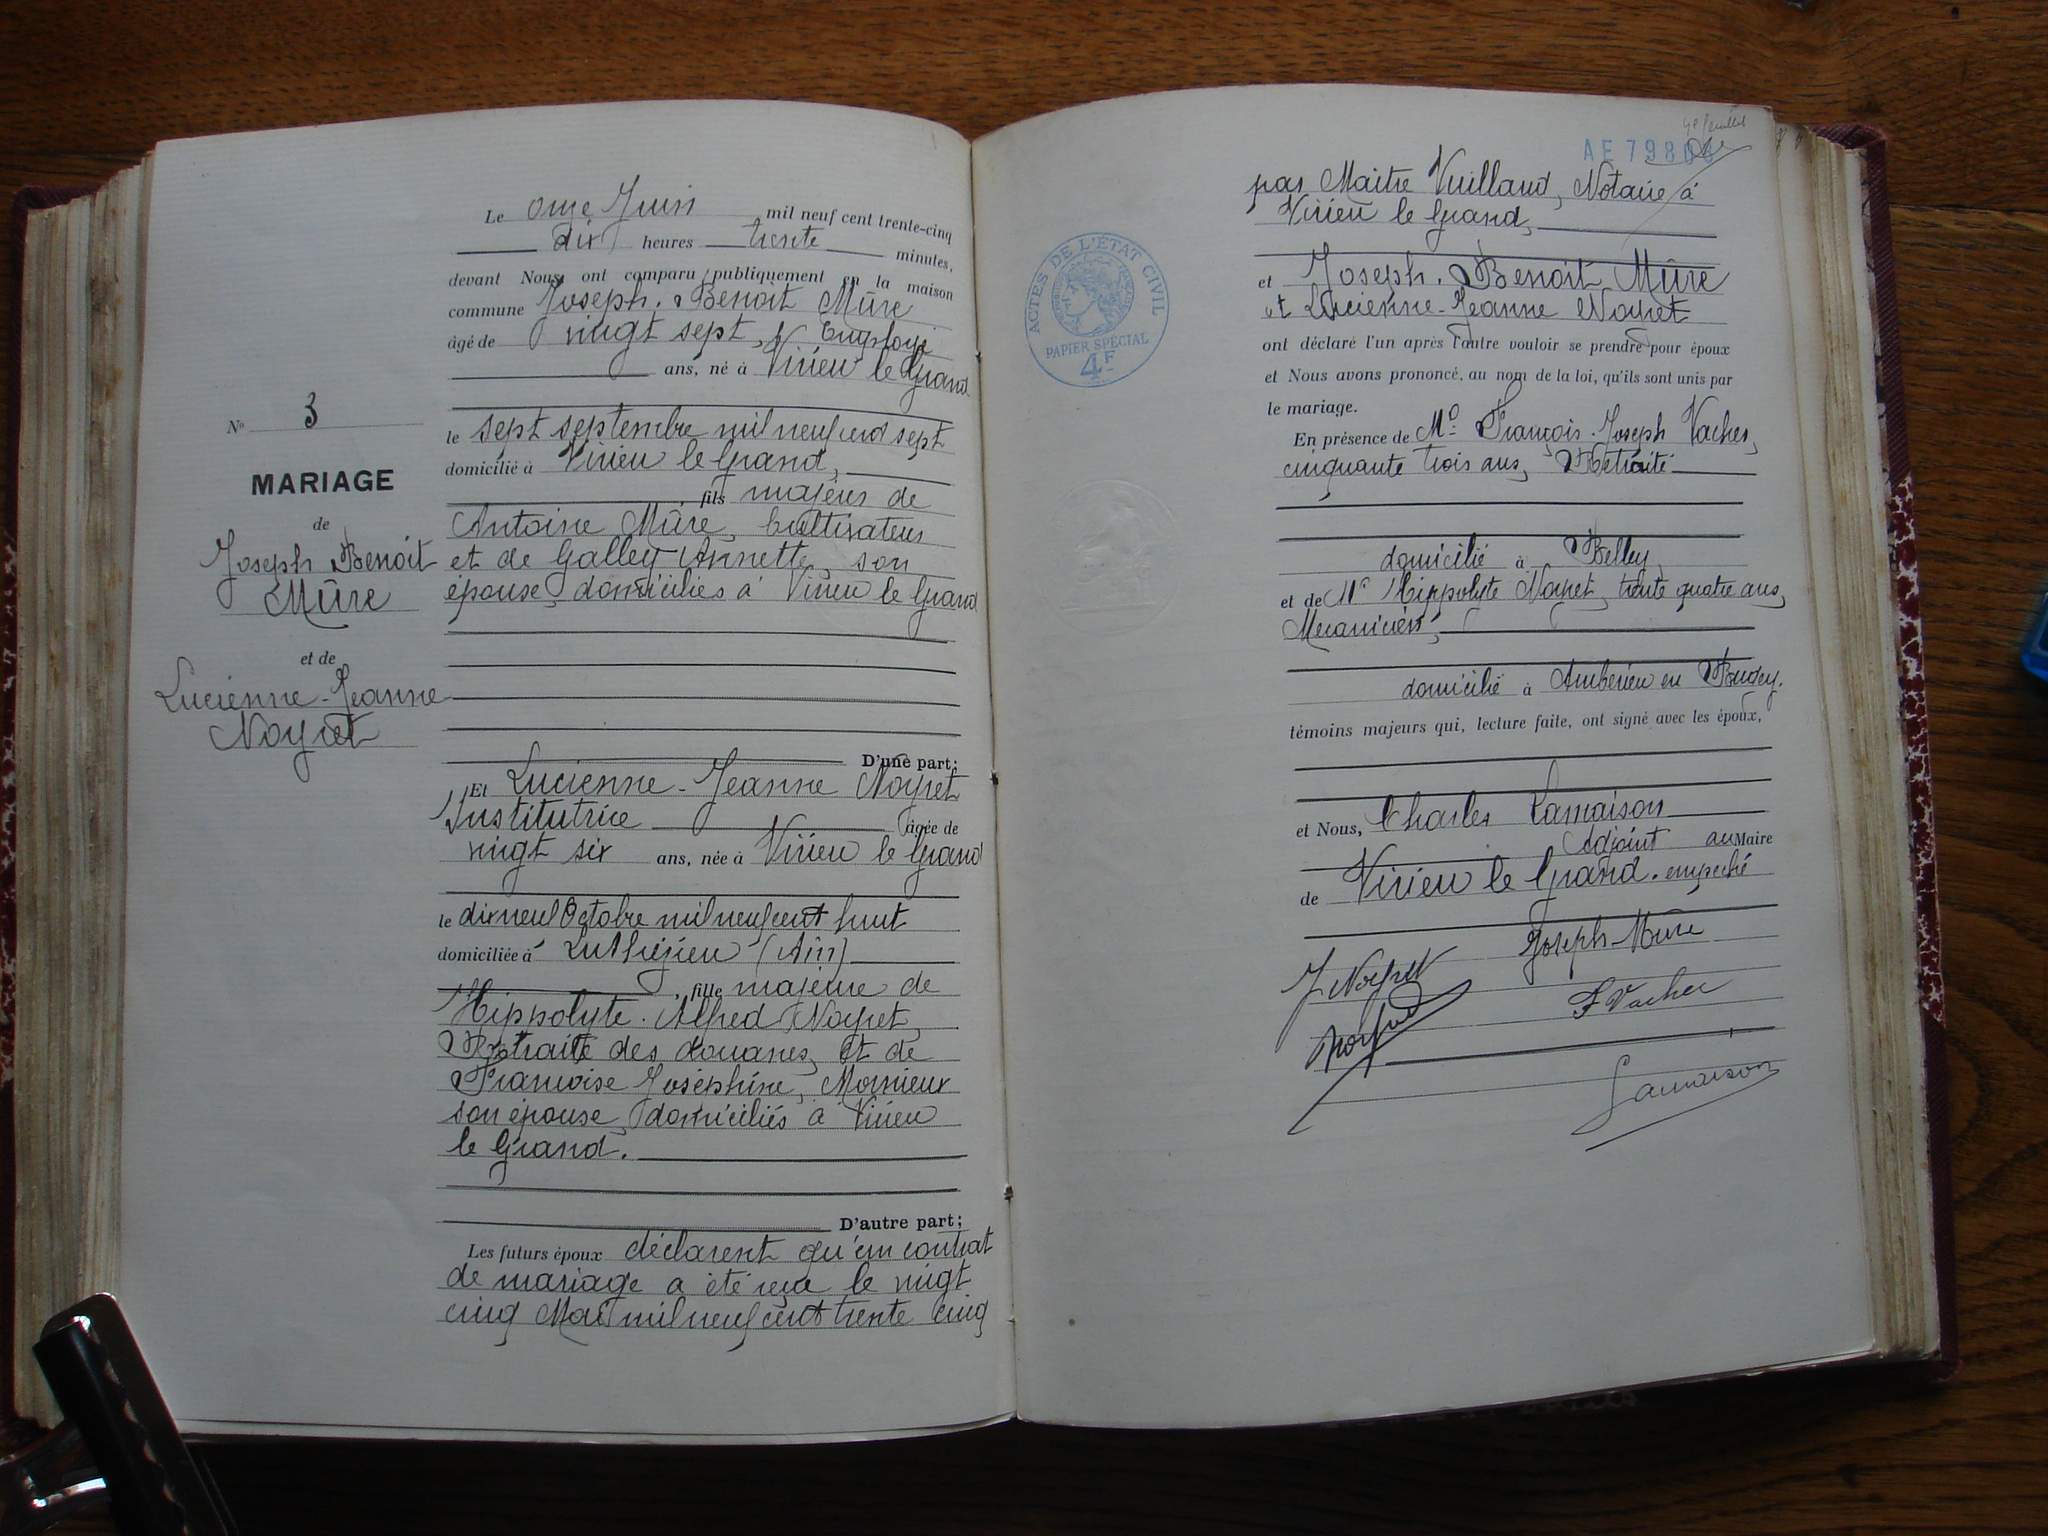 N° 3
MARIAGE
de
Joseph Benoit
Mûre
et de
Lucienne-Jeanne
Noyret
Le onze Juin mil neuf cent trente-cinq
dix heures trente minutes,
devant Nous ont comparu publiquement en la maison
commune Joseph. Benoit Mûre
âgé de vingt sept, Employé
ans, né à Virieu le Grand
le sept septembre mil neuf cent sept
domicilié à Virieu le Grand,
, fils majeur de
Antoine Mûre, Cultivateur
et de Galley Annette, son
épouse, domiciliés à Virieu le Grand
D'une part;
Et Lucienne-Jeanne Noyret
Institutrice âgée de
vingt six ans, née à Virieu le Grand
le dix neuf Octobre mil neuf cent huit
domiciliée à Luthézieu (Ain)
, fille majeure de
Hippolyte. Alfred Noyret,
Retraité des douanes, et de
Françoise Joséphine, Monnieux
son épouse, domiciliés à Virieu
le Grand.
D'autre part;
Les futurs époux déclarent qu'un contrat
de mariage a été reçu le vingt
cinq Mai mil neuf cent trente cinq
AE 7980
par Maitre Vuillaud, Notaire à
Virieu le Grand,
et Joseph. Benoit Mûre
et Lucienne-Jeanne Noyret
ont déclaré l'un après l'autre vouloir se prendre pour époux
et Nous avons prononcé, au nom de la loi, qu'ils sont unis par
le mariage.
En présence de Mr François-Joseph Vacher,
cinquante trois ans, Retraité
domicilié à Belley,
et de Mr Hippolyte Noyret, trente quatre ans,
Mécanicien,
domicilié à Ambérieu en Bugey.
témoins majeurs qui, lecture faite, ont signé avec les époux,
et Nous, Charles Lamaison
Adjoint au Maire
de Virieu le Grand. empeché
J Noyret Joseph Mûre
Noyret F Vacher
Lamaison
ACTES DE L'ÉTAT CIVIL
PAPIER SPÉCIAL
4F